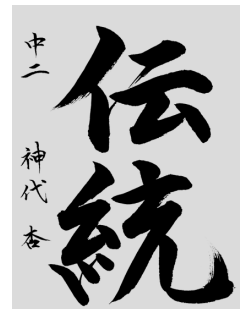 伝統
中二 神代 杏